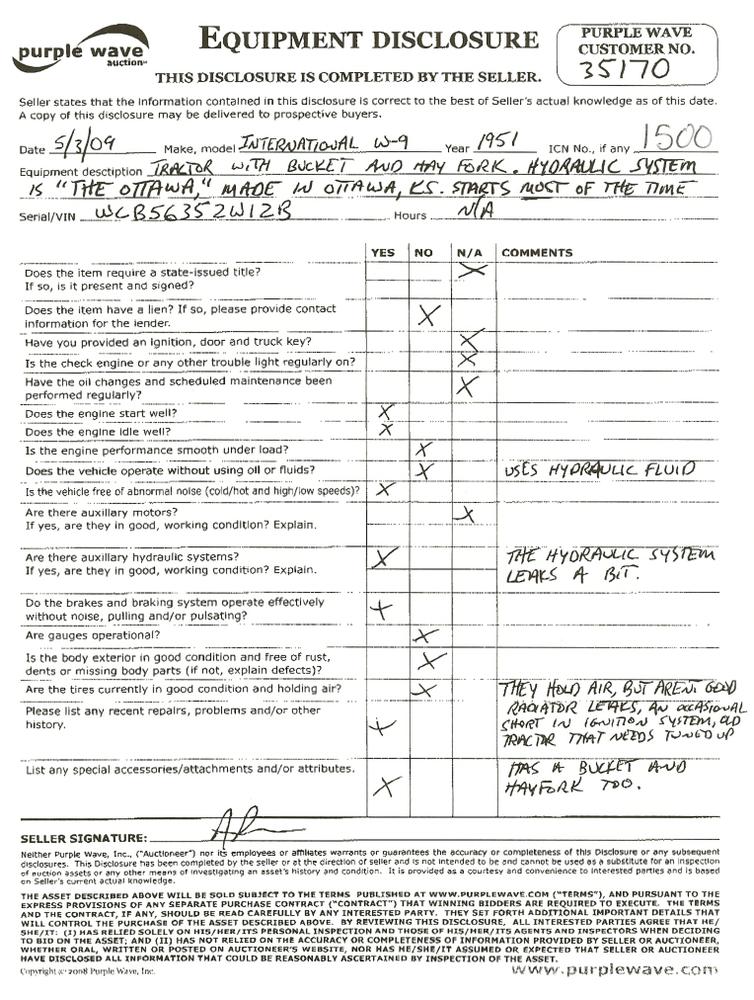 purple wave
auction™
EQUIPMENT DISCLOSURE
THIS DISCLOSURE IS COMPLETED BY THE SELLER.
PURPLE WAVE
CUSTOMER NO.
35170
Seller states that the information contained in this disclosure is correct to the best of Seller's actual knowledge as of this date.
A copy of this disclosure may be delivered to prospective buyers.
Date 5/3/09 Make, model INTERNATIONAL W-9 Year 1951 ICN No., if any 1500
Equipment desctiption TRACTOR WITH BUCKET AND HAY FORK. HYDRAULIC SYSTEM
IS "THE OTTAWA," MADE IN OTTAWA, KS. STARTS MOST OF THE TIME
Serial/VIN WCB56352W12B Hours N/A
YES NO N/A COMMENTS
Does the item require a state-issued title? X
If so, is it present and signed?
Does the item have a lien? If so, please provide contact X
information for the lender.
Have you provided an ignition, door and truck key? X
Is the check engine or any other trouble light regularly on? X
Have the oil changes and scheduled maintenance been X
performed regularly?
Does the engine start well? X
Does the engine idle well? X
Is the engine performance smooth under load? X
Does the vehicle operate without using oil or fluids? X USES HYDRAULIC FLUID
Is the vehicle free of abnormal noise (cold/hot and high/low speeds)? X
Are there auxillary motors? X
If yes, are they in good, working condition? Explain.
Are there auxillary hydraulic systems? X THE HYDRAULIC SYSTEM
If yes, are they in good, working condition? Explain. LEAKS A BIT.
Do the brakes and braking system operate effectively X
without noise, pulling and/or pulsating?
Are gauges operational? X
Is the body exterior in good condition and free of rust, X
dents or missing body parts (if not, explain defects)?
Are the tires currently in good condition and holding air? X THEY HOLD AIR, BUT AREN'T GOOD
Please list any recent repairs, problems and/or other X RADIATOR LEAKS, AN OCCASIONAL
history. SHORT IN IGNITION SYSTEM, OLD
TRACTOR THAT NEEDS TUNED UP
List any special accessories/attachments and/or attributes. X HAS A BUCKET AND
HAYFORK TOO.
SELLER SIGNATURE:
Neither Purple Wave, Inc., ("Auctioneer") nor its employees or affiliates warrants or guarantees the accuracy or completeness of this Disclosure or any subsequent
disclosures. This Disclosure has been completed by the seller or at the direction of seller and is not intended to be and cannot be used as a substitute for an inspection
of auction assets or any other means of investigating an asset's history and condition. It is provided as a courtesy and convenience to interested parties and is based
on Seller's current actual knowledge.
THE ASSET DESCRIBED ABOVE WILL BE SOLD SUBJECT TO THE TERMS PUBLISHED AT WWW.PURPLEWAVE.COM ("TERMS"), AND PURSUANT TO THE
EXPRESS PROVISIONS OF ANY SEPARATE PURCHASE CONTRACT ("CONTRACT") THAT WINNING BIDDERS ARE REQUIRED TO EXECUTE. THE TERMS
AND THE CONTRACT, IF ANY, SHOULD BE READ CAREFULLY BY ANY INTERESTED PARTY. THEY SET FORTH ADDITIONAL IMPORTANT DETAILS THAT
WILL CONTROL THE PURCHASE OF THE ASSET DESCRIBED ABOVE. BY REVIEWING THIS DISCLOSURE, ALL INTERESTED PARTIES AGREE THAT HE/
SHE/IT: (I) HAS RELIED SOLELY ON HIS/HER/ITS PERSONAL INSPECTION AND THOSE OF HIS/HER/ITS AGENTS AND INSPECTORS WHEN DECIDING
TO BID ON THE ASSET; AND (II) HAS NOT RELIED ON THE ACCURACY OR COMPLETENESS OF INFORMATION PROVIDED BY SELLER OR AUCTIONEER,
WHETHER ORAL, WRITTEN OR POSTED ON AUCTIONEER'S WEBSITE, NOR HAS HE/SHE/IT ASSUMED OR EXPECTED THAT SELLER OR AUCTIONEER
HAVE DISCLOSED ALL INFORMATION THAT COULD BE REASONABLY ASCERTAINED BY INSPECTION OF THE ASSET.
Copyright © 2008 Purple Wave, Inc. www.purplewave.com